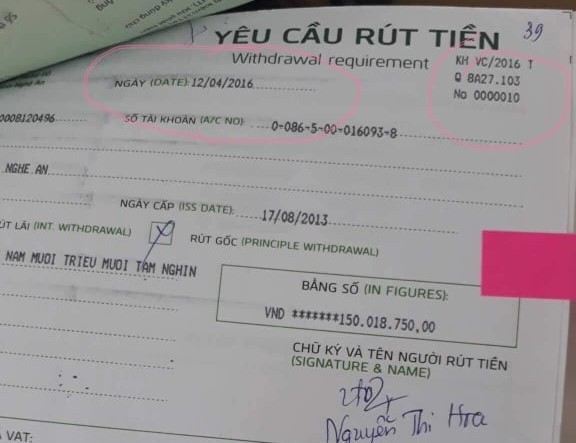 YÊU CẦU RÚT TIỀN
39
Withdrawal requirement
KH VC/2016 T
Q 8A27.103
No 0000010
NGÀY (DATE): 12/04/2016
0008120496
SỐ TÀI KHOẢN (A/C NO): 0-086-5-00-016093-8
NGHE AN
NGÀY CẤP (ISS DATE): 17/08/2013
ÚT LÃI (INT. WITHDRAWAL)
RÚT GỐC (PRINCIPLE WITHDRAWAL)
NAM MUOI TRIEU MUOI TAM NGHIN
BẰNG SỐ (IN FIGURES):
VND *******150.018.750,00
CHỮ KÝ VÀ TÊN NGƯỜI RÚT TIỀN
(SIGNATURE & NAME)
Nguyễn Thi Hoa
VAT: